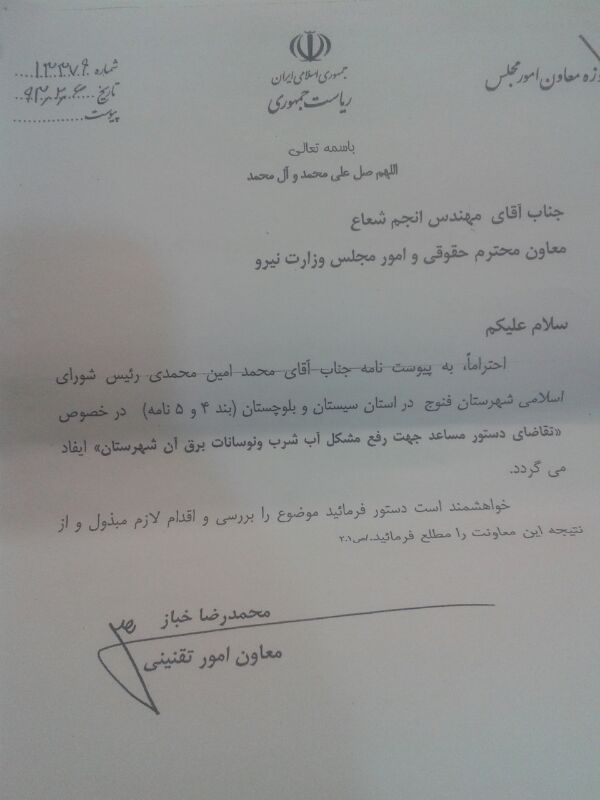 جمهوری اسلامی ایران
ریاست جمهوری
معاون امور مجلس
شماره ۱۳۳۷۹
تاریخ ۹۳.۲.۶
پیوست
باسمه تعالی
اللهم صل علی محمد و آل محمد
جناب آقای مهندس انجم شعاع
معاون محترم حقوقی و امور مجلس وزارت نیرو
سلام علیکم
احتراماً، به پیوست نامه جناب آقای محمد امین محمدی رئیس شورای
اسلامی شهرستان فنوج در استان سیستان و بلوچستان (بند ۴ و ۵ نامه) در خصوص
«تقاضای دستور مساعد جهت رفع مشکل آب شرب ونوسانات برق آن شهرستان» ایفاد
می گردد.
خواهشمند است دستور فرمائید موضوع را بررسی و اقدام لازم مبذول و از
نتیجه این معاونت را مطلع فرمائید./ص۲۰۱
محمدرضا خباز
معاون امور تقنینی